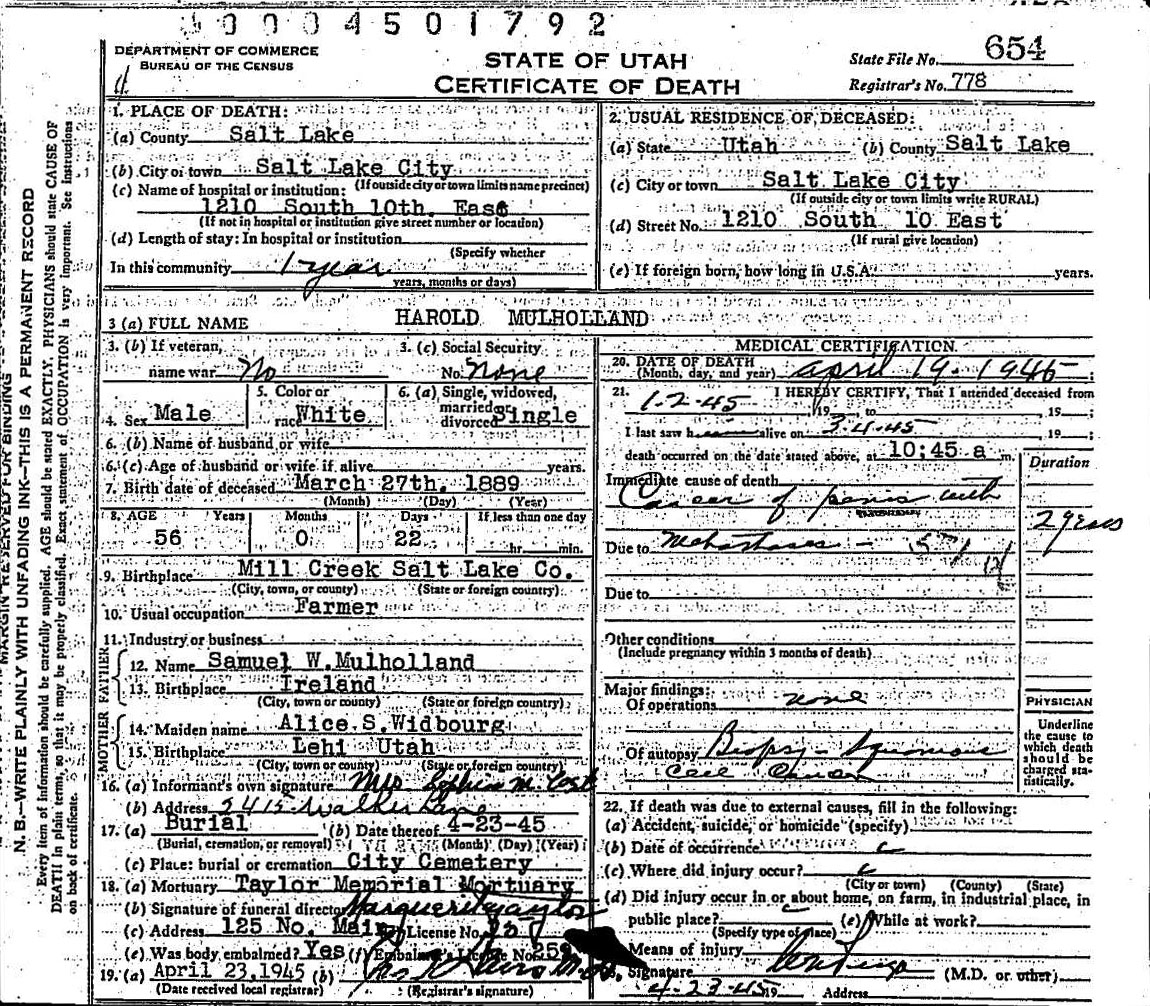 0004501792
DEPARTMENT OF COMMERCE
BUREAU OF THE CENSUS
STATE OF UTAH
CERTIFICATE OF DEATH
State File No. 654
Registrar's No. 778
MARGIN RESERVED FOR BINDING
N. B.—WRITE PLAINLY WITH UNFADING INK—THIS IS A PERMANENT RECORD
Every item of information should be carefully supplied. AGE should be stated EXACTLY. PHYSICIANS should state CAUSE OF
DEATH in plain terms, so that it may be properly classified. Exact statement of OCCUPATION is very important. See instructions
on back of certificate.
1. PLACE OF DEATH:
(a) County Salt Lake
(b) City or town Salt Lake City
(If outside city or town limits name precinct)
(c) Name of hospital or institution:
1210 South 10th. East
(If not in hospital or institution give street number or location)
(d) Length of stay: In hospital or institution
(Specify whether
In this community 1 year
years, months or days)
2. USUAL RESIDENCE OF DECEASED:
(a) State Utah (b) County Salt Lake
(c) City or town Salt Lake City
(If outside city or town limits write RURAL)
(d) Street No. 1210 South 10 East
(If rural give location)
(e) If foreign born, how long in U.S.A. years.
3 (a) FULL NAME HAROLD MULHOLLAND
3. (b) If veteran,
name war No
3. (c) Social Security
No. None
4. Sex Male
5. Color or
race White
6. (a) Single, widowed,
married or
divorced Single
6. (b) Name of husband or wife
6. (c) Age of husband or wife if alive years.
7. Birth date of deceased March 27th. 1889
(Month) (Day) (Year)
8. AGE Years Months Days If less than one day
56 0 22 hr. min.
9. Birthplace Mill Creek Salt Lake Co.
(City, town, or county) (State or foreign country)
10. Usual occupation Farmer
11. Industry or business
FATHER
12. Name Samuel W.Mulholland
13. Birthplace Ireland
(City, town or county) (State or foreign country)
MOTHER
14. Maiden name Alice S. Widbourg
15. Birthplace Lehi Utah
(City, town or county) (State or foreign country)
16. (a) Informant's own signature Mrs M.
(b) Address Walker Lane
17. (a) Burial (b) Date thereof 4-23-45
(Burial, cremation, or removal) (Month) (Day) (Year)
(c) Place: burial or cremation City Cemetery
18. (a) Mortuary Taylor Memorial Mortuary
(b) Signature of funeral director Marguerite Taylor
(c) Address 125 No. Main License No.
(e) Was body embalmed? Yes (f) Embalmer's License No. 259
19. (a) April 23.1945 (b)
(Date received local registrar) (Registrar's signature)
MEDICAL CERTIFICATION
20. DATE OF DEATH
(Month, day, and year) April 19 - 1945
21. I HEREBY CERTIFY, That I attended deceased from
1-2-45 19 , to 19 ;
I last saw h alive on 3-4-45 , 19 ;
death occurred on the date stated above, at 10:45 a m.
Duration
Immediate cause of death
Cancer of penis with
2 years
Due to Metastases -
Due to
Other conditions
(Include pregnancy within 3 months of death)
Major findings:
Of operations none
Of autopsy Biopsy - Squamous
Cell Cancer
PHYSICIAN
Underline
the cause to
which death
should be
charged sta-
tistically.
22. If death was due to external causes, fill in the following:
(a) Accident, suicide, or homicide (specify)
(b) Date of occurrence
(c) Where did injury occur?
(City or town) (County) (State)
(d) Did injury occur in or about home, on farm, in industrial place, in
public place? (e) While at work?
(Specify type of place)
Means of injury
Signature (M.D. or other)
4-23-45 19 Address